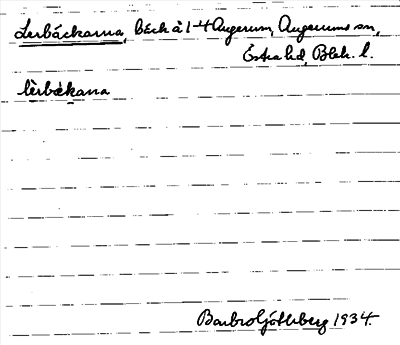 Lerbäckarna, bäck å 1 tt Augerum, Augerums sn,
Östra hd, Blek. l.
lèrbækana
Barbro Götlberg 1934.